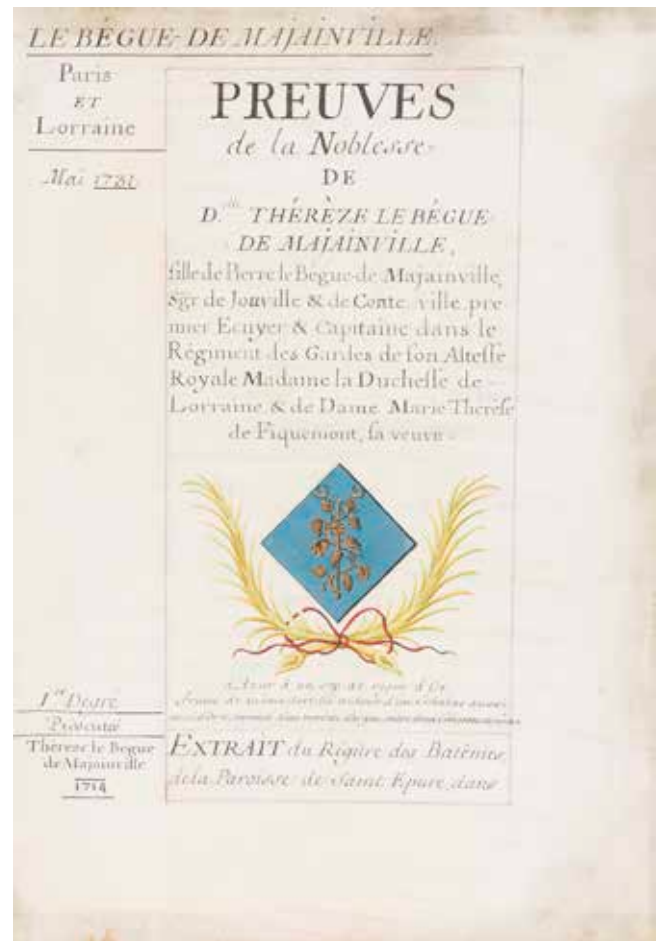 LE BÉGUE-DE MAJAINVILLE.
Paris
ET
Lorraine
Mai 1731
PREUVES
de la Noblesse
DE
D.lle THÉRÈZE LE BÉGUE
DE MAJAINVILLE,
fille de Pierre le Begue de Majainville,
Sgr de Jouville & de Conte ville, pre
mier Ecuyer & Capitaine dans le
Régiment des Gardes de son Altesse
Royale Madame la Duchesse de
Lorraine & de Dame Marie Therèse
de Fiquemont, sa veuve
d'Or
I.er Degré
Thérèze le Begue
de Majainville
1714
EXTRAIT du Régitre des Batêmes
de la Paroisse de Saint Epure, dans